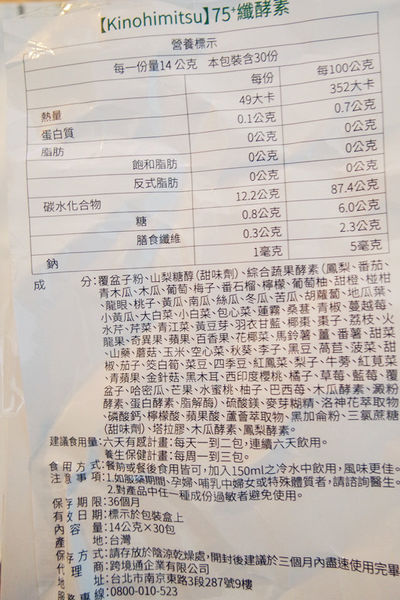 【Kinohimitsu】75⁺纖酵素
營養標示
每一份量14 公克 本包裝含30份
每份 每100公克
熱量 49大卡 352大卡
蛋白質 0.1公克 0.7公克
脂肪 0公克 0公克
飽和脂肪 0公克 0公克
反式脂肪 0公克 0公克
碳水化合物 12.2公克 87.4公克
糖 0.8公克 6.0公克
膳食纖維 0.3公克 2.3公克
鈉 1毫克 5毫克
成 分:覆盆子粉、山梨糖醇(甜味劑)、綜合蔬果酵素(鳳梨、番茄、
青木瓜、木瓜、葡萄、梅子、番石榴、檸檬、葡萄柚、甜橙、椪柑
、龍眼、桃子、黃瓜、南瓜、絲瓜、冬瓜、苦瓜、胡蘿蔔、地瓜葉、
小黃瓜、大白菜、小白菜、包心菜、蓮霧、桑葚、青椒、蔓越莓、
水芹、芹菜、青江菜、黃豆芽、羽衣甘藍、椰棗、棗子、荔枝、火
龍果、奇異果、蘋果、百香果、花椰菜、馬鈴薯、薑、番薯、甜菜
、山藥、蘑菇、玉米、空心菜、秋葵、李子、黑豆、萵苣、菠菜、甜
椒、茄子、筊白筍、菜豆、四季豆、紅鳳菜、梨子、牛蒡、紅莧菜
、青蘋果、金針菇、黑木耳、西印度櫻桃、橘子、草莓、藍莓、覆
盆子、哈密瓜、芒果、水蜜桃、柚子、巴西莓、木瓜酵素、澱粉
酵素、蛋白酵素、脂解酶)、硫酸鎂、麥芽糊精、洛神花萃取物
、磷酸鈣、檸檬酸、蘋果酸、蘆薈萃取物、黑加侖粉、三氯蔗糖
(甜味劑)、塔拉膠、木瓜酵素、鳳梨酵素。
建議食用量:六天有感計畫:每天一到二包,連續六天飲用。
養生保健計畫:每周一到三包。
食用方式:餐前或餐後食用皆可,加入150ml之冷水中飲用,風味更佳。
注意事項:1.如服藥期間、孕婦、哺乳中婦女或特殊體質者,請諮詢醫生。
2.對產品中任一種成份過敏者避免使用。
保存期限:36個月
有效日期:標示於包裝盒上
內容量:14公克×30包
產地:台灣
保存方式:請存放於陰涼乾燥處,開封後建議於三個月內盡速使用完畢
代理商:跨境通企業有限公司
地址:台北市南京東路3段287號9樓
服務專線:0800-010-523